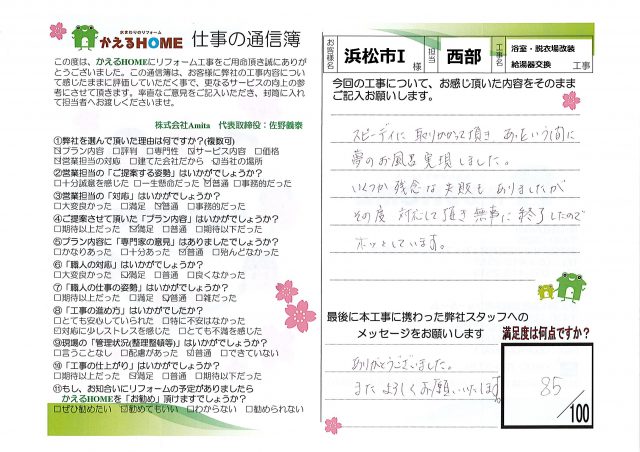 水まわりのリフォーム
かえるHOME 仕事の通信簿
この度は、かえるHOMEにリフォーム工事をご用命頂き誠にありが
とうございました。この通信簿は、お客様に弊社の工事内容につい
て感じたままに評価していただく事で、更なるサービスの向上の参
考にさせて頂きます。率直なご意見をご記入いただき、封筒に入れ
て担当者へお渡しくださいませ。
株式会社Amita 代表取締役：佐野義泰
①弊社を選んで頂いた理由は何ですか？(複数可)
☑プラン内容 □評判 □専門性 ☑サービス内容 □価格
☑営業担当の対応 □建てた会社だから ☑当社の場所
②営業担当の「ご提案する姿勢」はいかがでしょうか？
□十分誠意を感じた □一生懸命だった ☑普通 □事務的だった
③営業担当の「対応」はいかがでしょうか？
□大変良かった □満足 ☑普通 □事務的だった
④ご提案させて頂いた「プラン内容」はいかがでしょうか？
□期待以上だった ☑満足 □普通 □期待以下だった
⑤プラン内容に「専門家の意見」はありましたでしょうか？
□かなりあった □十分あった ☑普通 □殆んどなかった
⑥「職人の対応」はいかがでしょうか？
□大変良かった ☑満足 □普通 □良くなかった
⑦「職人の仕事の姿勢」はいかがでしょうか？
□期待以上だった □満足 ☑普通 □雑だった
⑧「工事の進め方」はいかがでしたか？
□とても安心していられた □特に不安はなかった
☑対応に少しストレスを感じた □とても不満を感じた
⑨現場の「管理状況(整理整頓等)」はいかがでしょうか？
□言うことなし □配慮があった ☑普通 □できていない
⑩「工事の仕上がり」はいかがでしょうか？
□期待以上だった ☑満足 □普通 □期待以下だった
⑪もし、お知合いにリフォームの予定がありましたら
かえるHOMEを「お勧め」頂けますでしょうか？
□ぜひ勧めたい ☑勧めてもいい □わからない □勧められない
お客様名 浜松市I 様 担当 西部 工事名 浴室・脱衣場改装
給湯器交換 工事
今回の工事について、お感じ頂いた内容をそのまま
ご記入お願いします。
スピーディに取りかかって頂き あっという間に
夢のお風呂実現しました。
いくつか残念な失敗もありましたが
その度 対応して頂き無事に終了したので
ホッとしています。
最後に本工事に携わった弊社スタッフへの
メッセージをお願いします
満足度は何点ですか？
ありがとうございました。
またよろしくお願いいたします。
85
/100